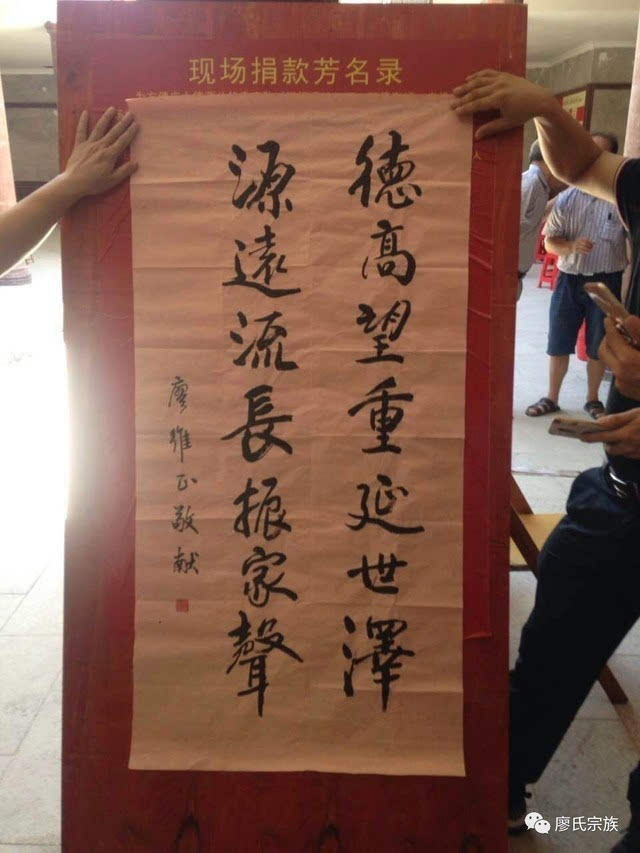 现场捐款芳名录
德高望重延世澤
源遠流長振家聲
廖維正敬献
廖氏宗族